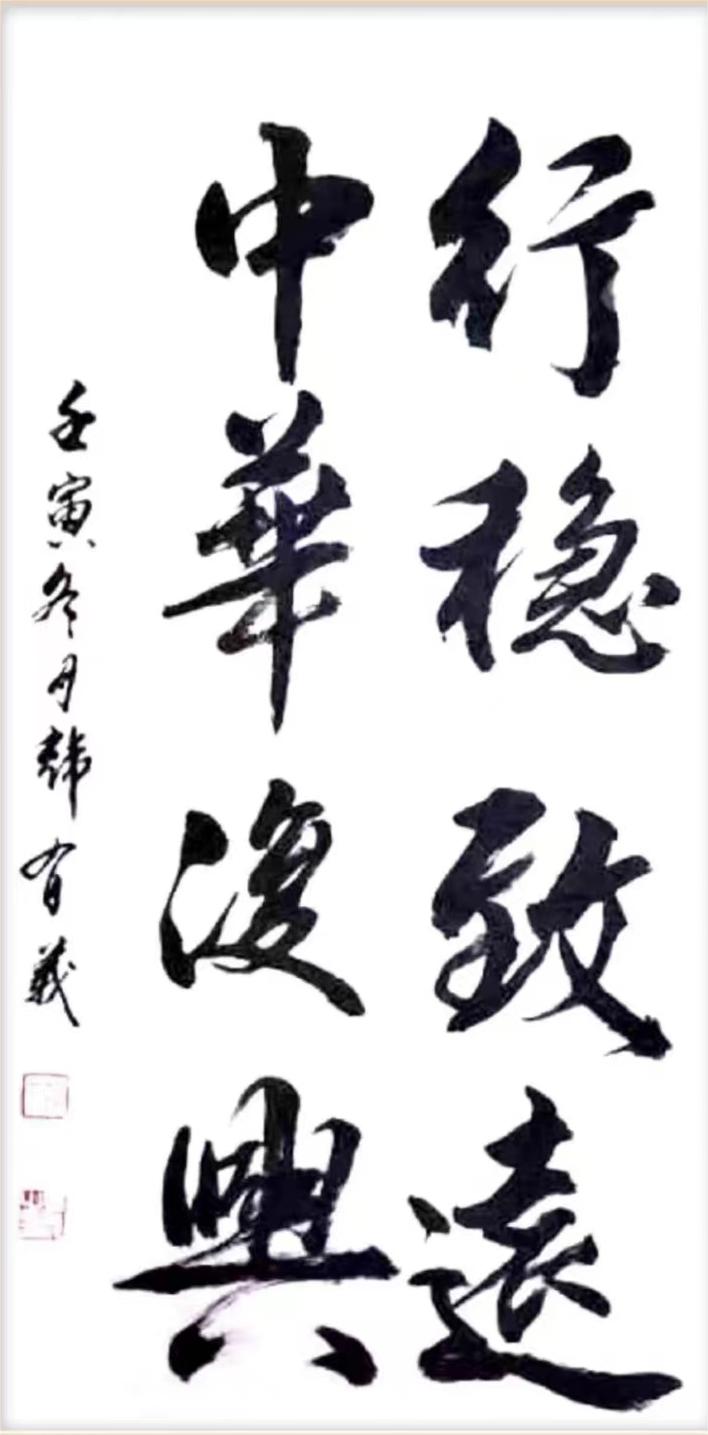 行稳致遠
中華復興
壬寅冬月韩有義